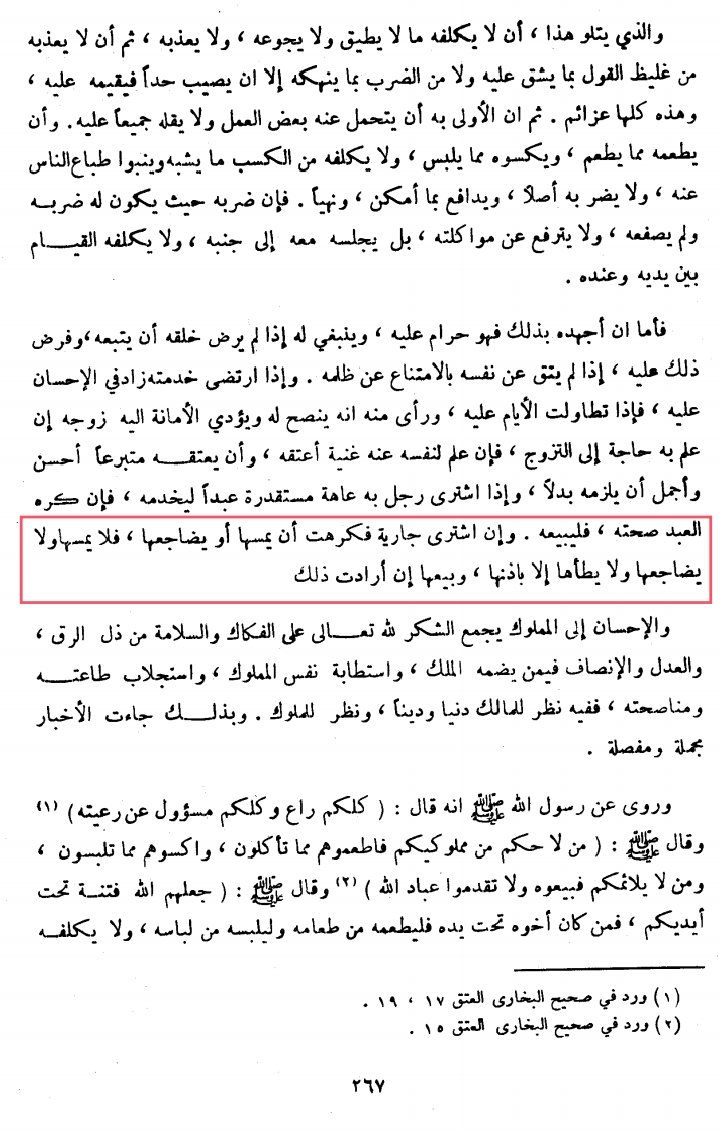 والذي يتلو هذا ، أن لا يكلفه ما لا يطيق ولا يجوعه ، ولا يعذبه ، ثم أن لا يعذبه
من غليظ القول بما يشق عليه ولا من الضرب بما ينهكه إلا ان يصيب حداً فيقيمه عليه ،
وهذه كلها عزائم . ثم ان الأولى به أن يتحمل عنه بعض العمل ولا يقله جميعاً عليه . وأن
يطعمه مما يطعم ، ويكسوه مما يلبس ، ولا يكلفه من الكسب ما يشبه وينبوا طباع الناس
عنه ، ولا يضر به أصلاً ، ويدافع بما أمكن ، ونهياً . فإن ضربه حيث يكون له ضربه
ولم يصفعه ، ولا يترفع عن مواكلته ، بل يجلسه معه إلى جنبه ، ولا يكلفه القيام
بين يديه وعنده .
فأما ان أجهده بذلك فهو حرام عليه ، وينبغي له إذا لم يرض خلقه أن يتبعه ، وفرض
ذلك عليه ، إذا لم يثق عن نفسه بالامتناع عن ظلمه . وإذا ارتضى خدمته زاد في الإحسان
عليه ، فإذا تطاولت الأيام عليه ، ورأى منه انه ينصح له ويؤدي الأمانة اليه زوجه إن
علم به حاجة إلى التزوج ، فإن علم لنفسه عنه غنية أعتقه ، وأن يعتقه متبرعاً أحسن
وأجمل أن يلزمه بدلاً ، وإذا اشترى رجل به عاهة مستقدرة عبداً ليخدمه ، فإن كره
العبد صحته ، فليبيعه . وإن اشترى جارية فكرهت أن يمسها أو يضاجعها ، فلا يمسها ولا
يضاجعها ولا يطأها إلا باذنها ، وبيعها إن أرادت ذلك
والإحسان إلى المملوك يجمع الشكر لله تعالى على الفكاك والسلامة من ذل الرق ،
والعدل والإنصاف فيمن يضمه الملك ، واستطابة نفس المملوك ، واستجلاب طاعته
ومناصحته ، ففيه نظر للمالك دنيا وديناً ، ونظر للملوك . وبذلك جاءت الأخبار
مجملة ومفصلة .
وروى عن رسول الله ﷺ انه قال : ( كلكم راع وكلكم مسؤول عن رعيته ) (١)
وقال ﷺ : ( من لا حكم من مملوكيكم فاطعموهم مما تأكلون ، واكسوهم مما تلبسون ،
ومن لا يلائمكم فبيعوه ولا تقدموا عباد الله ) (٢) وقال ﷺ : ( جعلهم الله فتنة تحت
أيديكم ، فمن كان أخوه تحت يده فليطعمه من طعامه وليلبسه من لباسه ، ولا يكلفه
(١) ورد في صحيح البخارى العتق ١٧ ، ١٩ .
(٢) ورد في صحيح البخارى العتق ١٥ .
٢٦٧